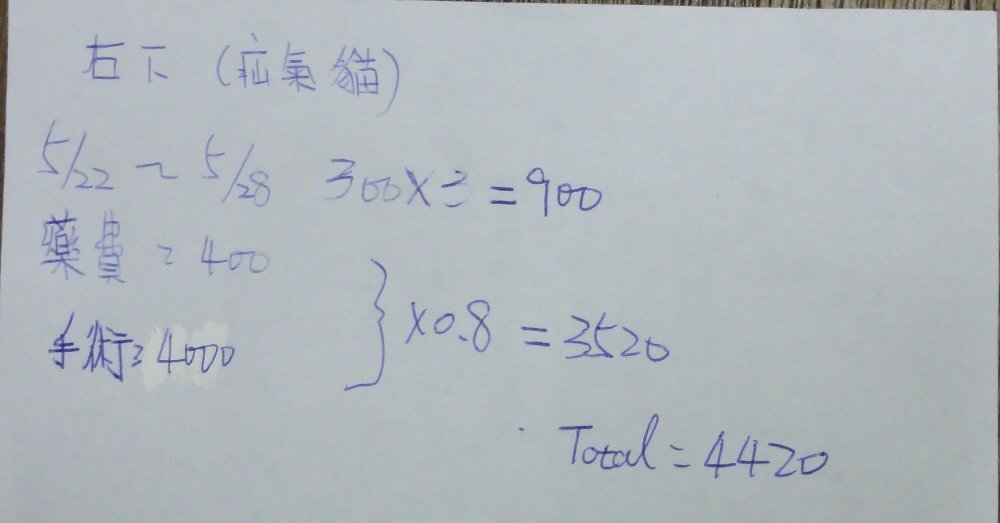 右下 (疝氣貓)
5/22 ~ 5/28 300x3 = 900
藥費 = 400
手術 = 4000
} x0.8 = 3520
Total = 4420